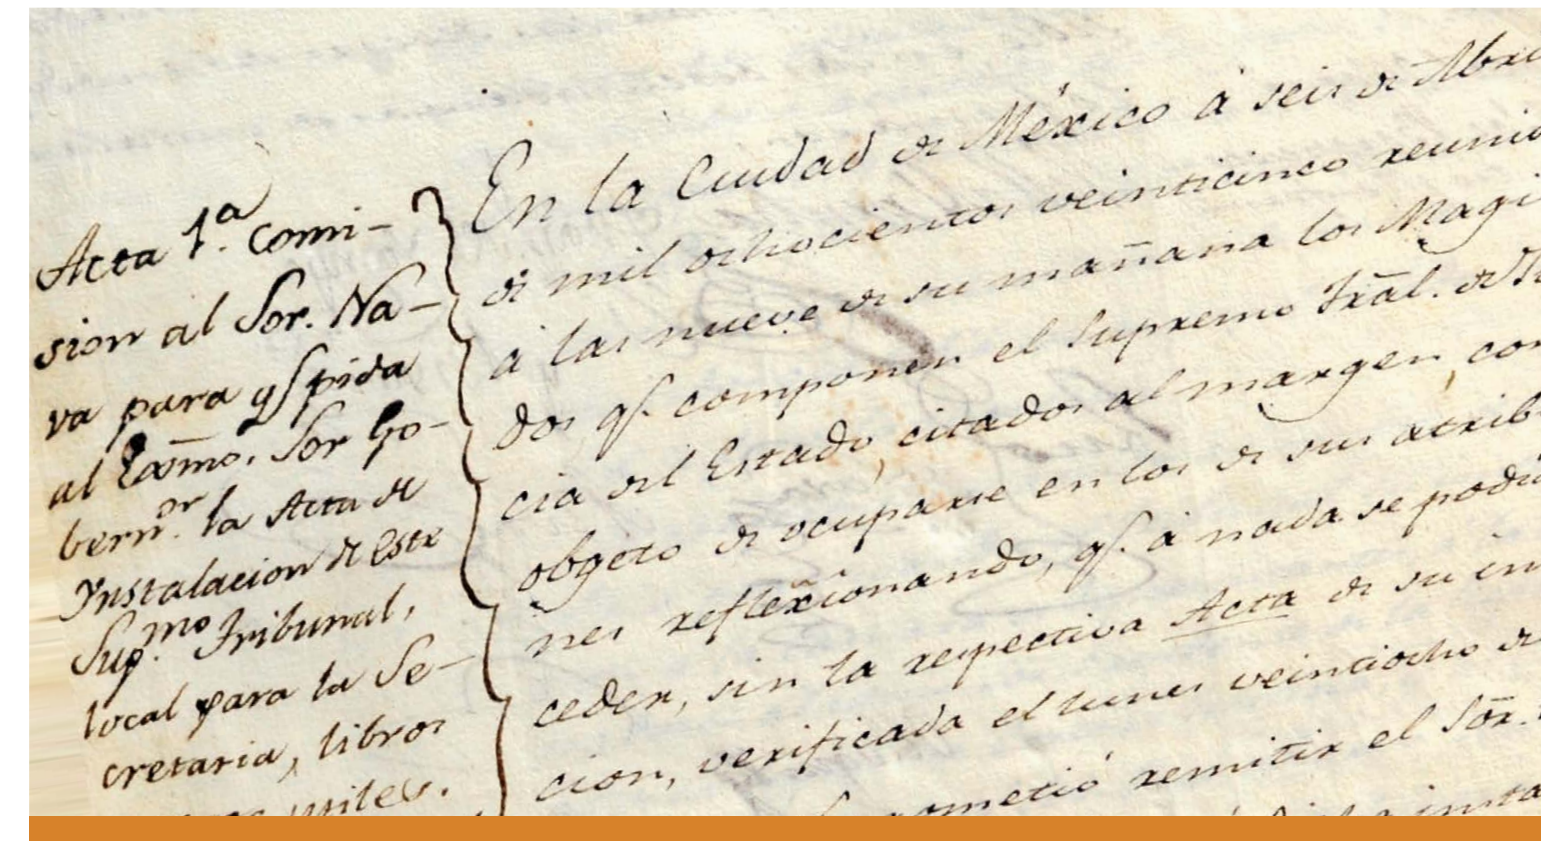 Acta 1.ª comi-
sion al Sor. Na-
va para q̃ pida
al Exm̃o. Sor Go-
bern.ᵒʳ la Acta de
Ynstalacion de este
Sup.ᵐᵒ Tribunal,
local para la Se-
cretaria, libros
utiles.
En la Ciudad de México á seis de Abri
de mil ochocientos veinticinco reuni
á las nueve de su mañana los Magi
dos q̃. componen el Supremo Trãl. de
cia del Estado, citados al margen, con
obgeto de ocuparse en los de sus atrib
nes reflexîonando, q̃. á nada se podi
ceder, sin la respectiva Acta de su in
cion, verificada el lunes veintiocho de
ometió remitir el Sõr.
insta